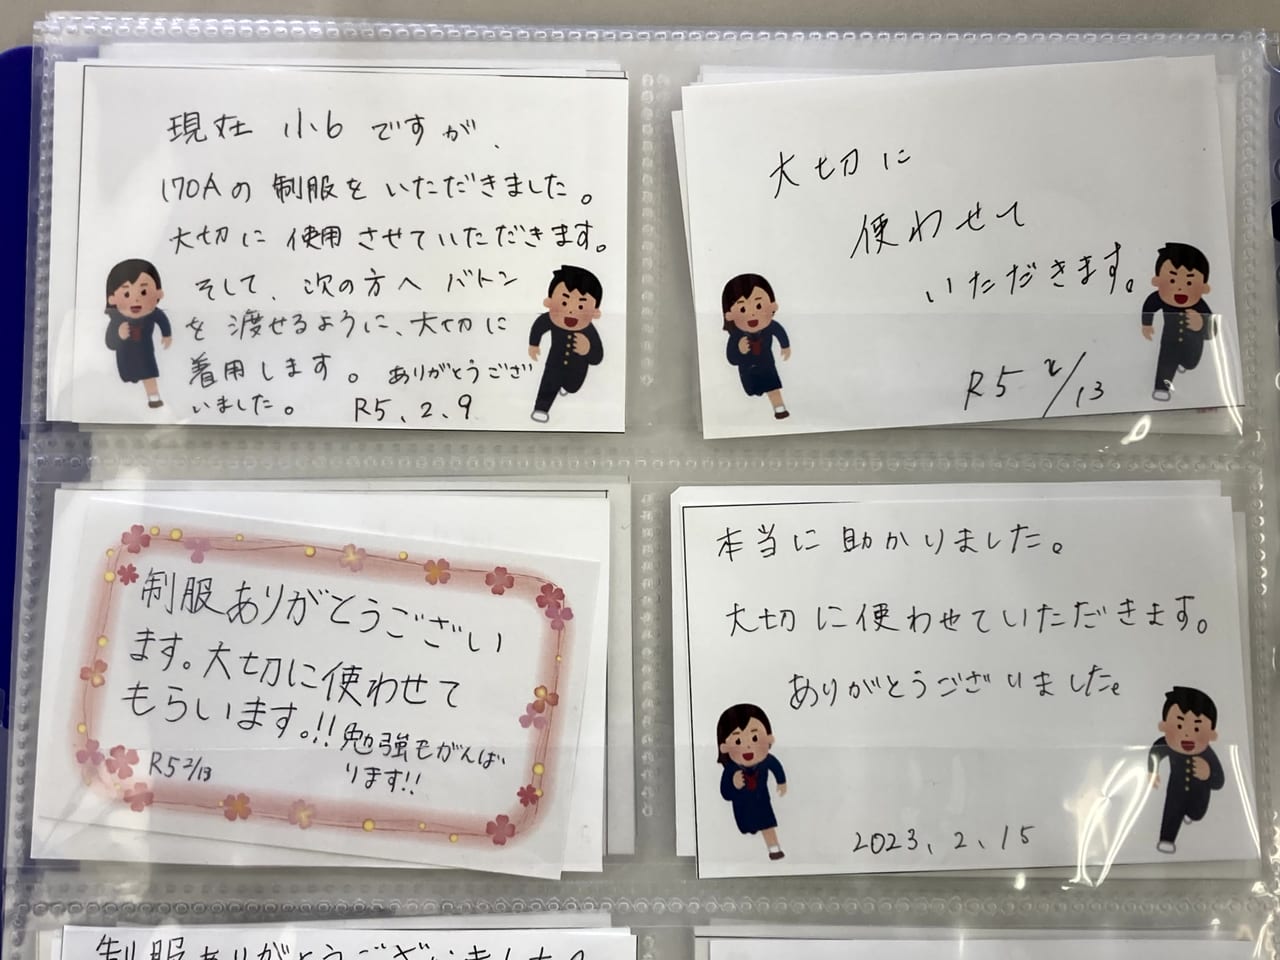 現在 小6 ですが、
170Aの 制服を いただきました。
大切に 使用 させていただきます。
そして、次の方へ バトン
を 渡せるように、大切に
着用します。 ありがとうござ
いました。 R5、2、9
大切に
使わせて
いただきます。
R5 2/13
制服ありがとうござい
ます。大切に使わせて
もらいます。!!
勉強もがんば
ります!!
R5 2/13
本当に 助かりました。
大切に使わせていただきます。
ありがとうございました。
2023、2、15
制服ありがとうございました